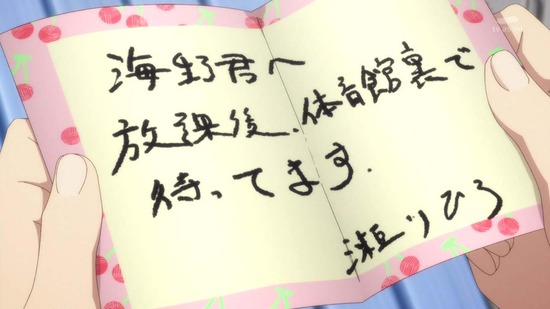 海野君へ
放課後、体育館裏で
待ってます.